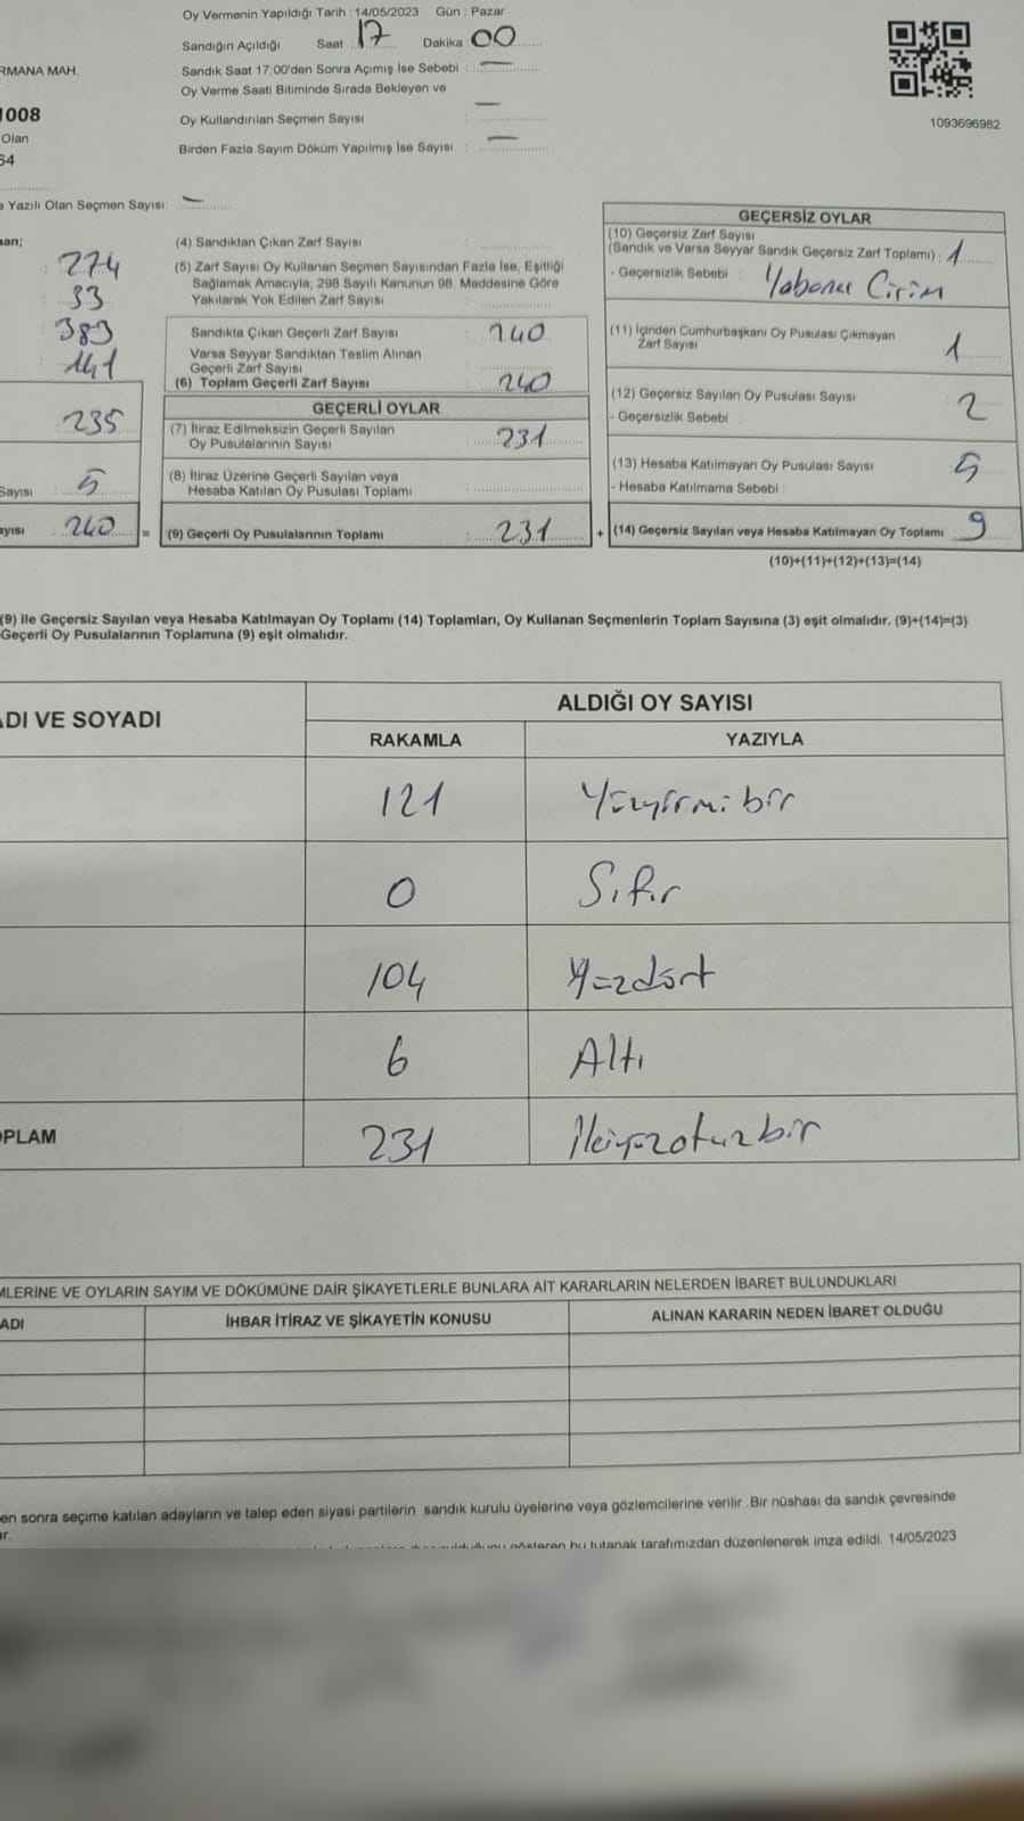 Oy Vermenin Yapıldığı Tarih : 14/05/2023 Gün : Pazar
Sandığın Açıldığı Saat 17 Dakika 00
RMANA MAH.
Sandık Saat 17:00'den Sonra Açımış İse Sebebi : —
Oy Verme Saati Bitiminde Sırada Bekleyen ve
1008
Oy Kullandırılan Seçmen Sayısı —
1093696982
Olan
64
Birden Fazla Sayım Döküm Yapılmış İse Sayısı : —
Yazılı Olan Seçmen Sayısı —
274
33
383
141
235
Sayısı 5
ayısı 240 =
(4) Sandıktan Çıkan Zarf Sayısı
(5) Zarf Sayısı Oy Kullanan Seçmen Sayısından Fazla İse, Eşitliği
Sağlamak Amacıyla, 298 Sayılı Kanunun 98. Maddesine Göre
Yakılarak Yok Edilen Zarf Sayısı
Sandıkta Çıkan Geçerli Zarf Sayısı 240
Varsa Seyyar Sandıktan Teslim Alınan
Geçerli Zarf Sayısı
(6) Toplam Geçerli Zarf Sayısı 240
GEÇERLİ OYLAR
(7) İtiraz Edilmeksizin Geçerli Sayılan
Oy Pusulalarının Sayısı : 231
(8) İtiraz Üzerine Geçerli Sayılan veya
Hesaba Katılan Oy Pusulası Toplamı
(9) Geçerli Oy Pusulalarının Toplamı : 231
GEÇERSİZ OYLAR
(10) Geçersiz Zarf Sayısı
(Sandık ve Varsa Seyyar Sandık Geçersiz Zarf Toplamı) : 1
- Geçersizlik Sebebi : Yabancı Cirim
(11) İçinden Cumhurbaşkanı Oy Pusulası Çıkmayan
Zarf Sayısı 1
(12) Geçersiz Sayılan Oy Pusulası Sayısı 2
- Geçersizlik Sebebi
(13) Hesaba Katılmayan Oy Pusulası Sayısı 5
- Hesaba Katılmama Sebebi :
+ (14) Geçersiz Sayılan veya Hesaba Katılmayan Oy Toplamı 9
(10)+(11)+(12)+(13)=(14)
(9) ile Geçersiz Sayılan veya Hesaba Katılmayan Oy Toplamı (14) Toplamları, Oy Kullanan Seçmenlerin Toplam Sayısına (3) eşit olmalıdır. (9)+(14)=(3)
Geçerli Oy Pusulalarının Toplamına (9) eşit olmalıdır.
ADI VE SOYADI
ALDIĞI OY SAYISI
RAKAMLA YAZIYLA
121 Yüzyirmi bir
0 Sıfır
104 Yüzdört
6 Altı
OPLAM 231 İkiyüzotuzbir
MLERİNE VE OYLARIN SAYIM VE DÖKÜMÜNE DAİR ŞİKAYETLERLE BUNLARA AİT KARARLARIN NELERDEN İBARET BULUNDUKLARI
ADI İHBAR İTİRAZ VE ŞİKAYETİN KONUSU ALINAN KARARIN NEDEN İBARET OLDUĞU
en sonra seçime katılan adayların ve talep eden siyasi partilerin sandık kurulu üyelerine veya gözlemcilerine verilir. Bir nüshası da sandık çevresinde
ar.
gösteren bu tutanak tarafımızdan düzenlenerek imza edildi. 14/05/2023